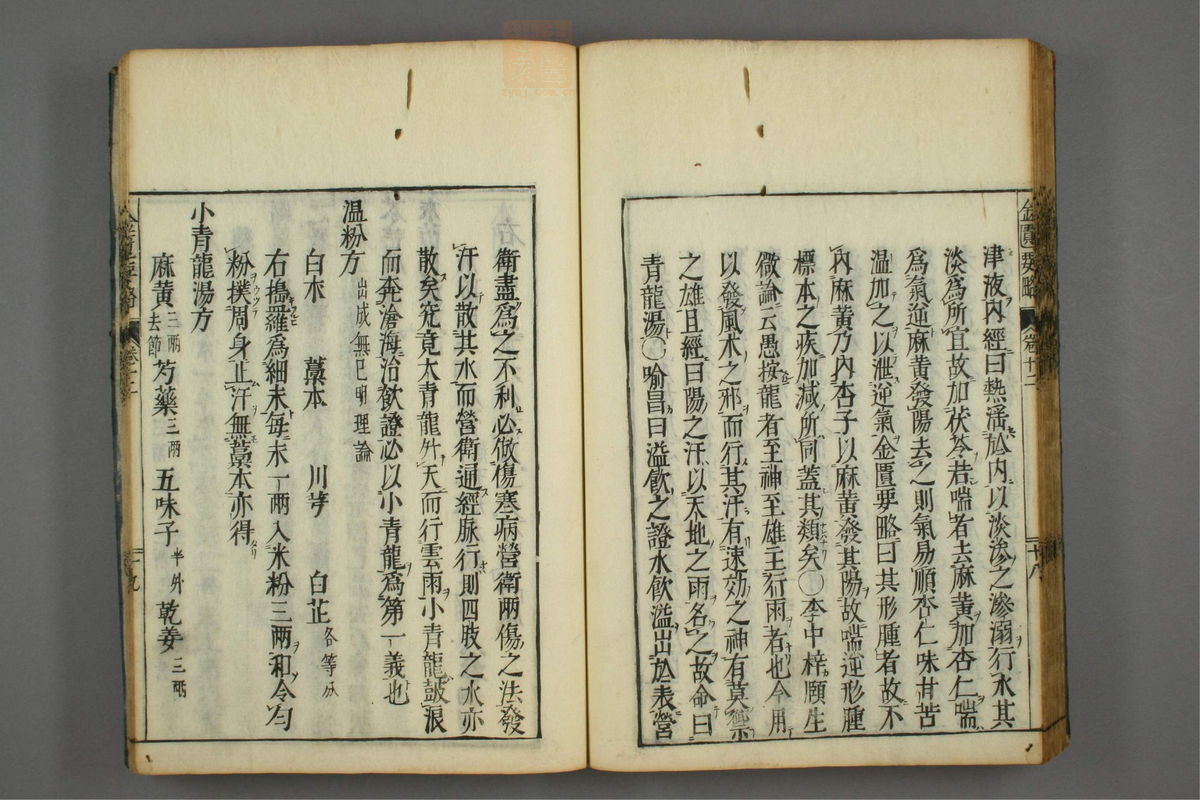 津液内經曰熱淫於内以淡滲之滲溺行水其
淡爲所宜故加伏苓若喘者去麻黄加杏仁喘
爲氣逆麻黄發陽去之則氣易順杏仁味甘苦
温加之以泄逆氣金匱要略曰其形腫者故不
内麻黄乃内杏子以麻黄發其陽故喘逆形腫
標本之疾加減所同蓋其類矣○李中梓頤生
微論云愚按龍者至神至雄主行雨者也今用
以發風水之邪而行其汗有速効之神有莫禦
之雄且經曰陽之汗以天地之雨名之故命曰
青龍湯○喻昌曰溢飲之證水飲溢出於表營
衛盡爲之不利必倣傷寒病營衛兩傷之法發
汗以散其水而營衛通經脉行則四肢之水亦
散矣究竟大青龍升天而行雲雨小青龍鼓浪
而奔滄海治飲證必以小青龍爲第一義也
温粉方 出成無已明理論
白朮 藁本 川芎 白芷 各等分
右搗羅爲細末每末一兩入米粉三兩和令勻
粉撲周身止汗無藁本亦得
小青龍湯方
麻黄 三兩去節 芍藥 三兩 五味子 半升 乾姜 三兩
卷十二
十八